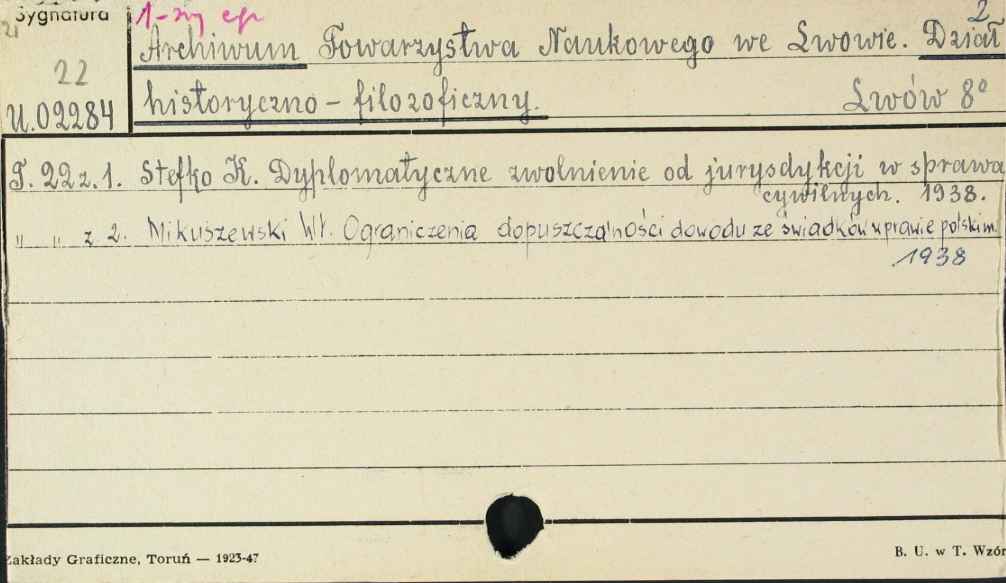 Sygnatura 1-szy egz 2
Archiwum Towarzystwa Naukowego we Lwowie. Dział
22
historyczno-filozoficzny. Lwów 8°
U.02284
T. 22 z. 1. Stefko K. Dyplomatyczne zwolnienie od jurysdykcji w sprawa
cywilnych. 1938.
" " z 2. Nikuszewski Wł. Ograniczenia dopuszczalności dowodu ze świadków w prawie polskim
1938
Zakłady Graficzne, Toruń — 1923-47 B. U. w T. Wzór